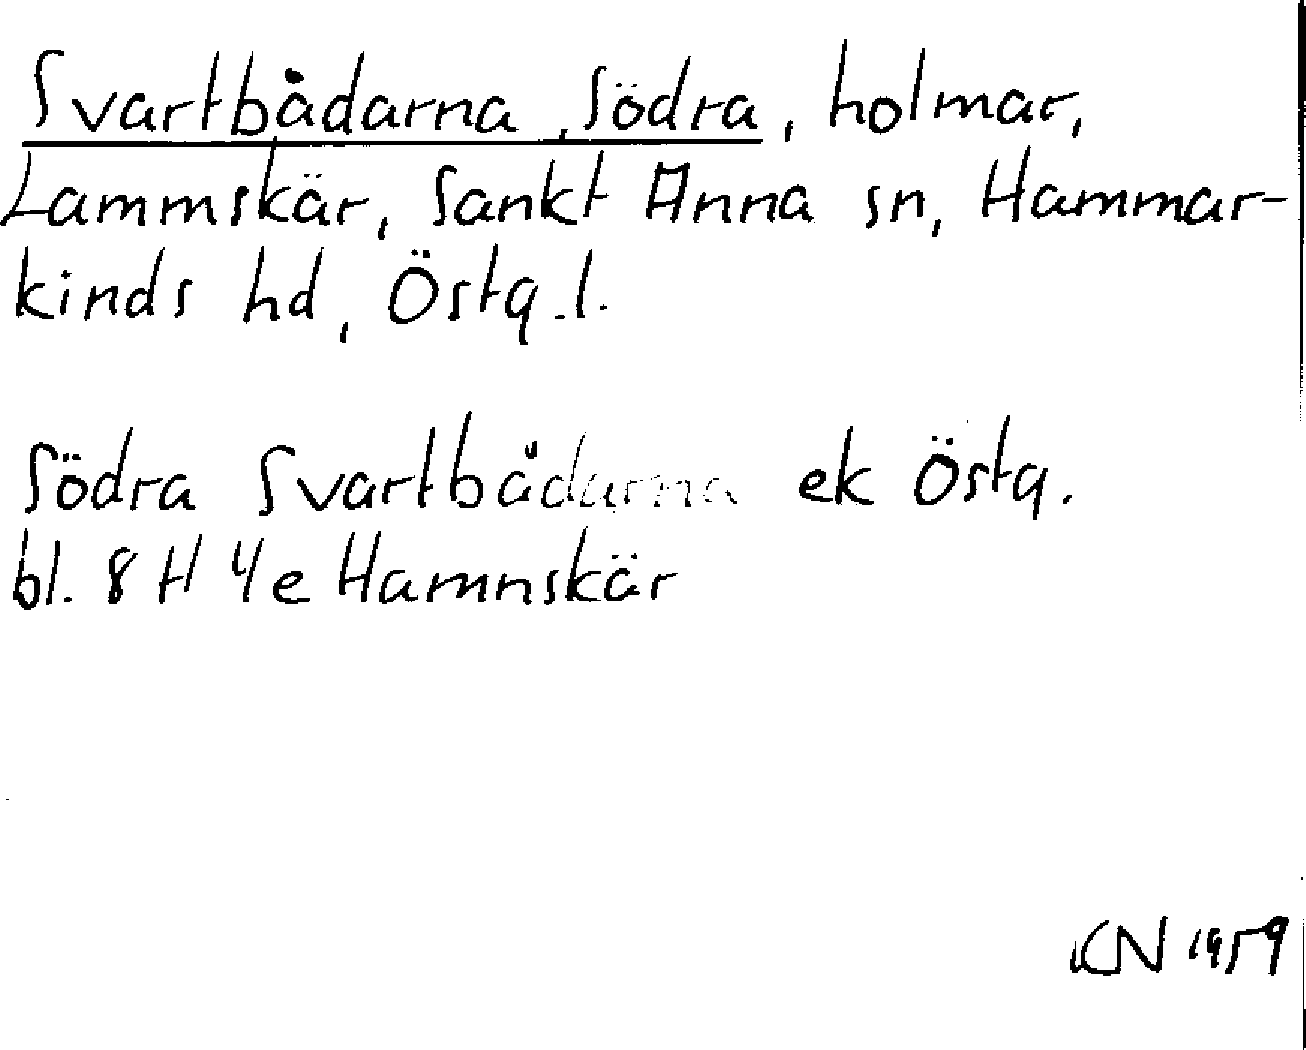 Svartbådarna, Södra, holmar,
Lammskär, Sankt Anna sn, Hammar-
kinds hd, Östg.l.
Södra Svartbådarna ek Östg.
bl. 8 H 4e Hamnskär
CN 1959